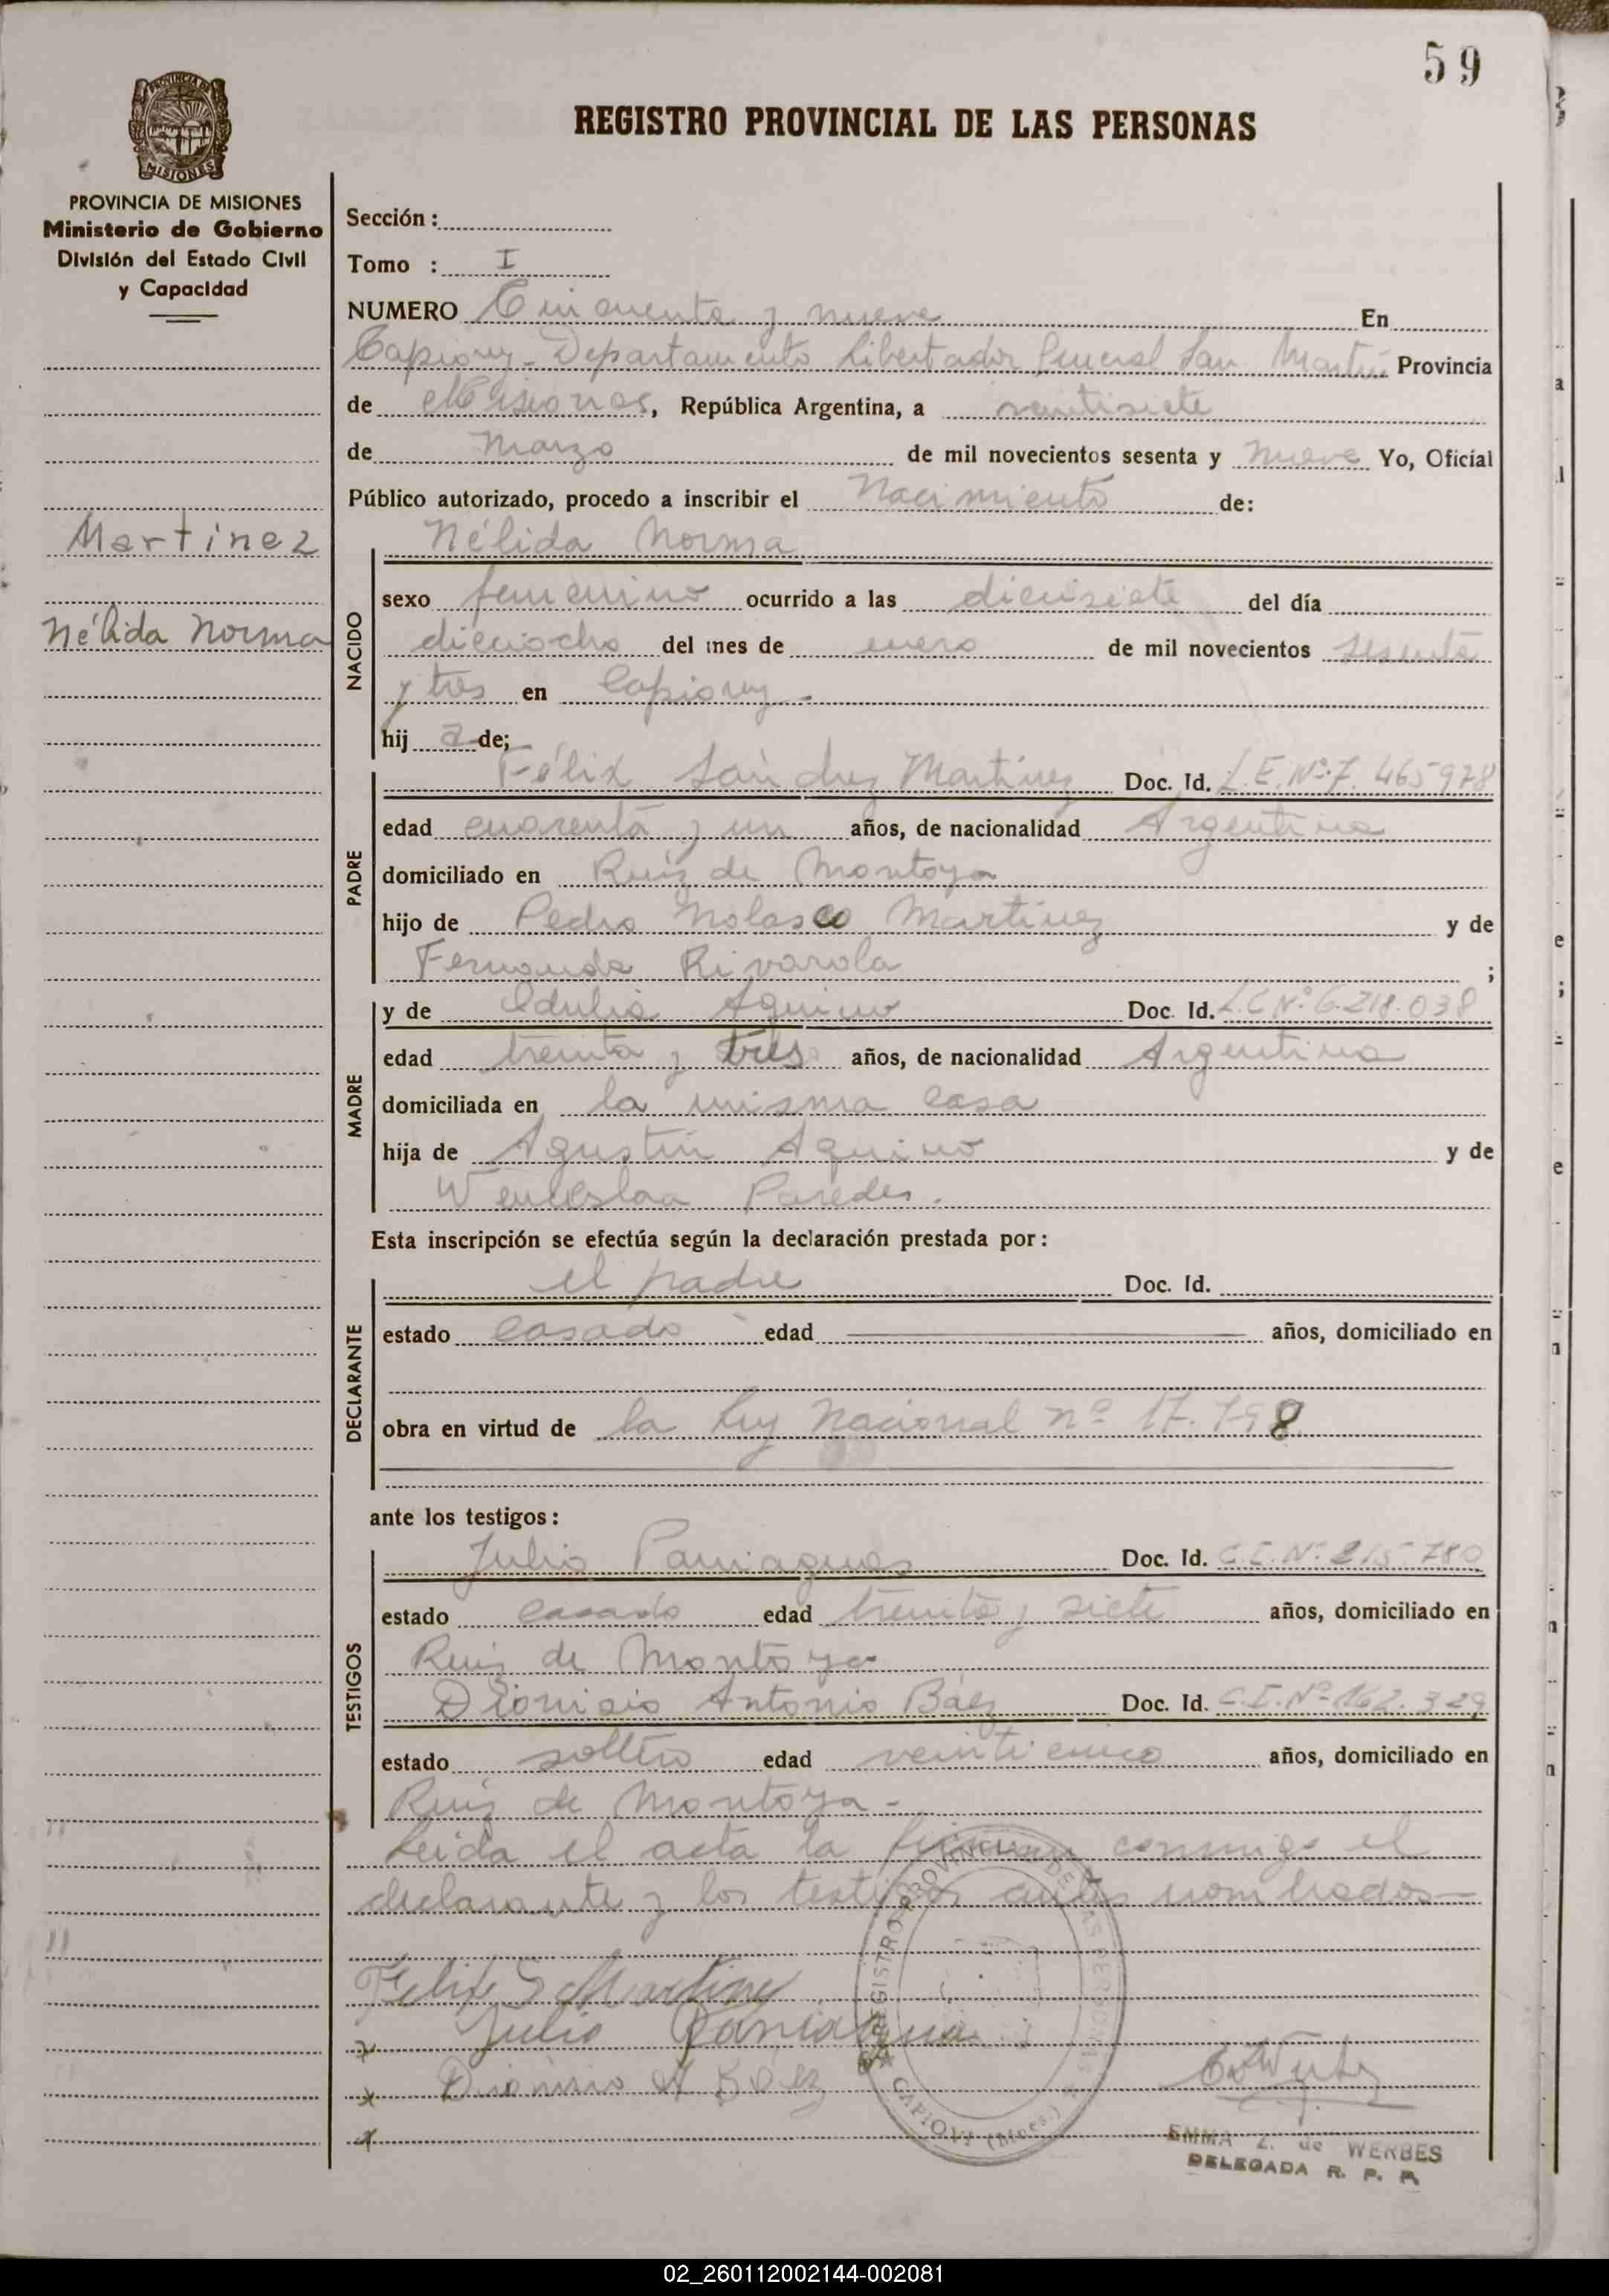 59
REGISTRO PROVINCIAL DE LAS PERSONAS
PROVINCIA DE MISIONES
PROVINCIA DE MISIONES
Ministerio de Gobierno
División del Estado Civil
y Capacidad
Martinez
Nélida Norma
Sección:
Tomo : I
NUMERO Cincuenta y nueve En
Capiovy - Departamento Libertador General San Martín Provincia
de Misiones, República Argentina, a veintisiete
de Marzo de mil novecientos sesenta y nueve Yo, Oficial
Público autorizado, procedo a inscribir el Nacimiento de:
Nélida Norma
NACIDO
sexo femenino ocurrido a las diecisiete del día
dieciocho del mes de enero de mil novecientos sesenta
y tres en Capiovy.
hij a de;
PADRE
Félix Sánchez Martínez Doc. Id. L.E.Nº 7.465978
edad cuarenta y un años, de nacionalidad Argentina
domiciliado en Ruiz de Montoya
hijo de Pedro Nolasco Martínez y de
Fernanda Rivarola ;
MADRE
y de Edulia Aquino Doc. Id. L.C Nº 6.218.038
edad treinta y tres años, de nacionalidad Argentina
domiciliada en la misma casa
hija de Agustín Aquino y de
Wenceslaa Paredes.
Esta inscripción se efectúa según la declaración prestada por:
DECLARANTE
el padre Doc. Id.
estado casado edad años, domiciliado en
obra en virtud de la Ley Nacional nº 17.798
ante los testigos:
TESTIGOS
Julio Paniagua Doc. Id. C.I.Nº 215.780
estado casado edad treinta y siete años, domiciliado en
Ruiz de Montoya
Dionisio Antonio Báez Doc. Id. C.I.Nº 162.329
estado soltero edad veinticinco años, domiciliado en
Ruiz de Montoya -
Leida el acta la firman conmigo el
declarante y los testigos antes nombrados
Felix S Martinez
Julio Paniagua
Dionisio A Báez
REGISTRO PROVINCIAL DE LAS PERSONAS
CAPIOVI (Mnes.)
EMMA Z. de WERBES
DELEGADA R. P. P.
02_260112002144-002081